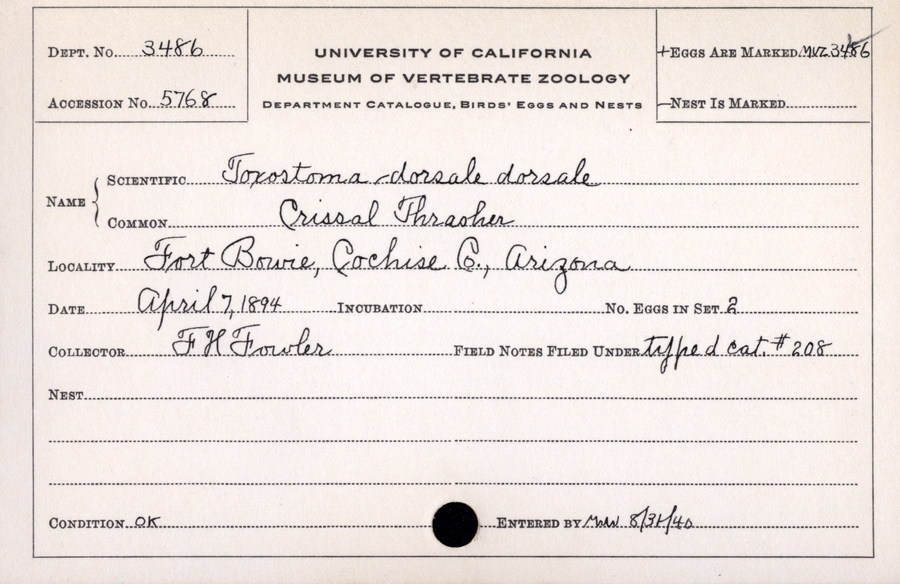 DEPT. No. 3486
UNIVERSITY OF CALIFORNIA
MUSEUM OF VERTEBRATE ZOOLOGY
DEPARTMENT CATALOGUE, BIRDS' EGGS AND NESTS
ACCESSION No. 5768
+EGGS ARE MARKED MVZ3486
—NEST IS MARKED
NAME
SCIENTIFIC Toxostoma dorsale dorsale
COMMON Crissal Thrasher
LOCALITY Fort Bowie, Cochise Co., Arizona
DATE April 7, 1894 INCUBATION No. EGGS IN SET 2
COLLECTOR F H Fowler FIELD NOTES FILED UNDER typed cat. # 208
NEST
CONDITION OK ENTERED BY 8/31/40